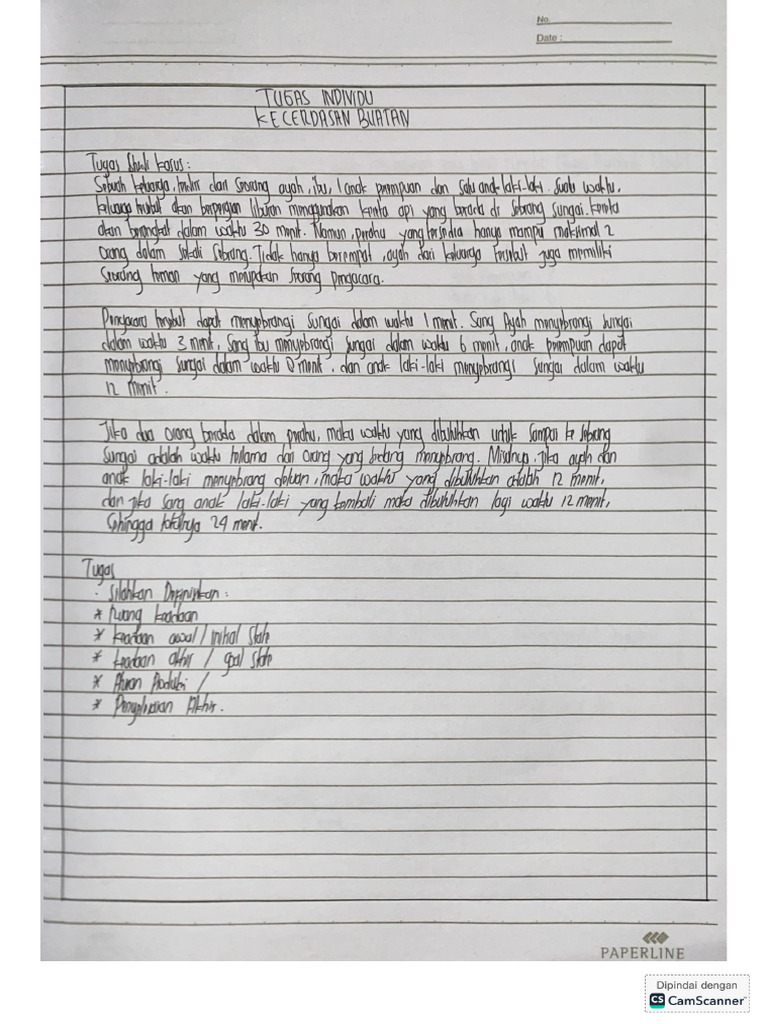 No.
Date :
TUGAS INDIVIDU
KECERDASAN BUATAN
Tugas Studi Kasus :
Sebuah keluarga, terdiri dari seorang ayah, ibu, 1 anak perempuan dan satu anak laki-laki. Suatu waktu,
keluarga tersebut akan berpergian liburan menggunakan kereta api yang berada di sebrang sungai. Kereta
akan berangkat dalam waktu 30 menit. Namun, perahu yang tersedia hanya mampu maksimal 2
orang dalam sekali sebrang. Tidak hanya berempat, ayah dari keluarga tersebut juga memiliki
seorang teman yang merupakan seorang pengacara.
Pengacara tersebut dapat menyebrangi sungai dalam waktu 1 menit. Sang Ayah menyebrangi sungai
dalam waktu 3 menit, Sang ibu menyebrangi sungai dalam waktu 6 menit, anak perempuan dapat
menyebrangi sungai dalam waktu 8 menit, dan anak laki-laki menyebrangi sungai dalam waktu
12 menit.
Jika dua orang berada dalam perahu, maka waktu yang dibutuhkan untuk sampai ke sebrang
sungai adalah waktu terlama dari orang yang sedang menyebrang. Misalnya, jika ayah dan
anak laki-laki menyebrang duluan, maka waktu yang dibutuhkan adalah 12 menit,
dan jika sang anak laki-laki yang kembali maka dibutuhkan lagi waktu 12 menit,
sehingga totalnya 24 menit.
Tugas
· Silahkan Definisikan :
* Ruang keadaan
* keadaan awal / initial state
* keadaan akhir / goal state
* Aturan Produksi /
* Penyelesaian Akhir.
PAPERLINE
Dipindai dengan
CS CamScanner